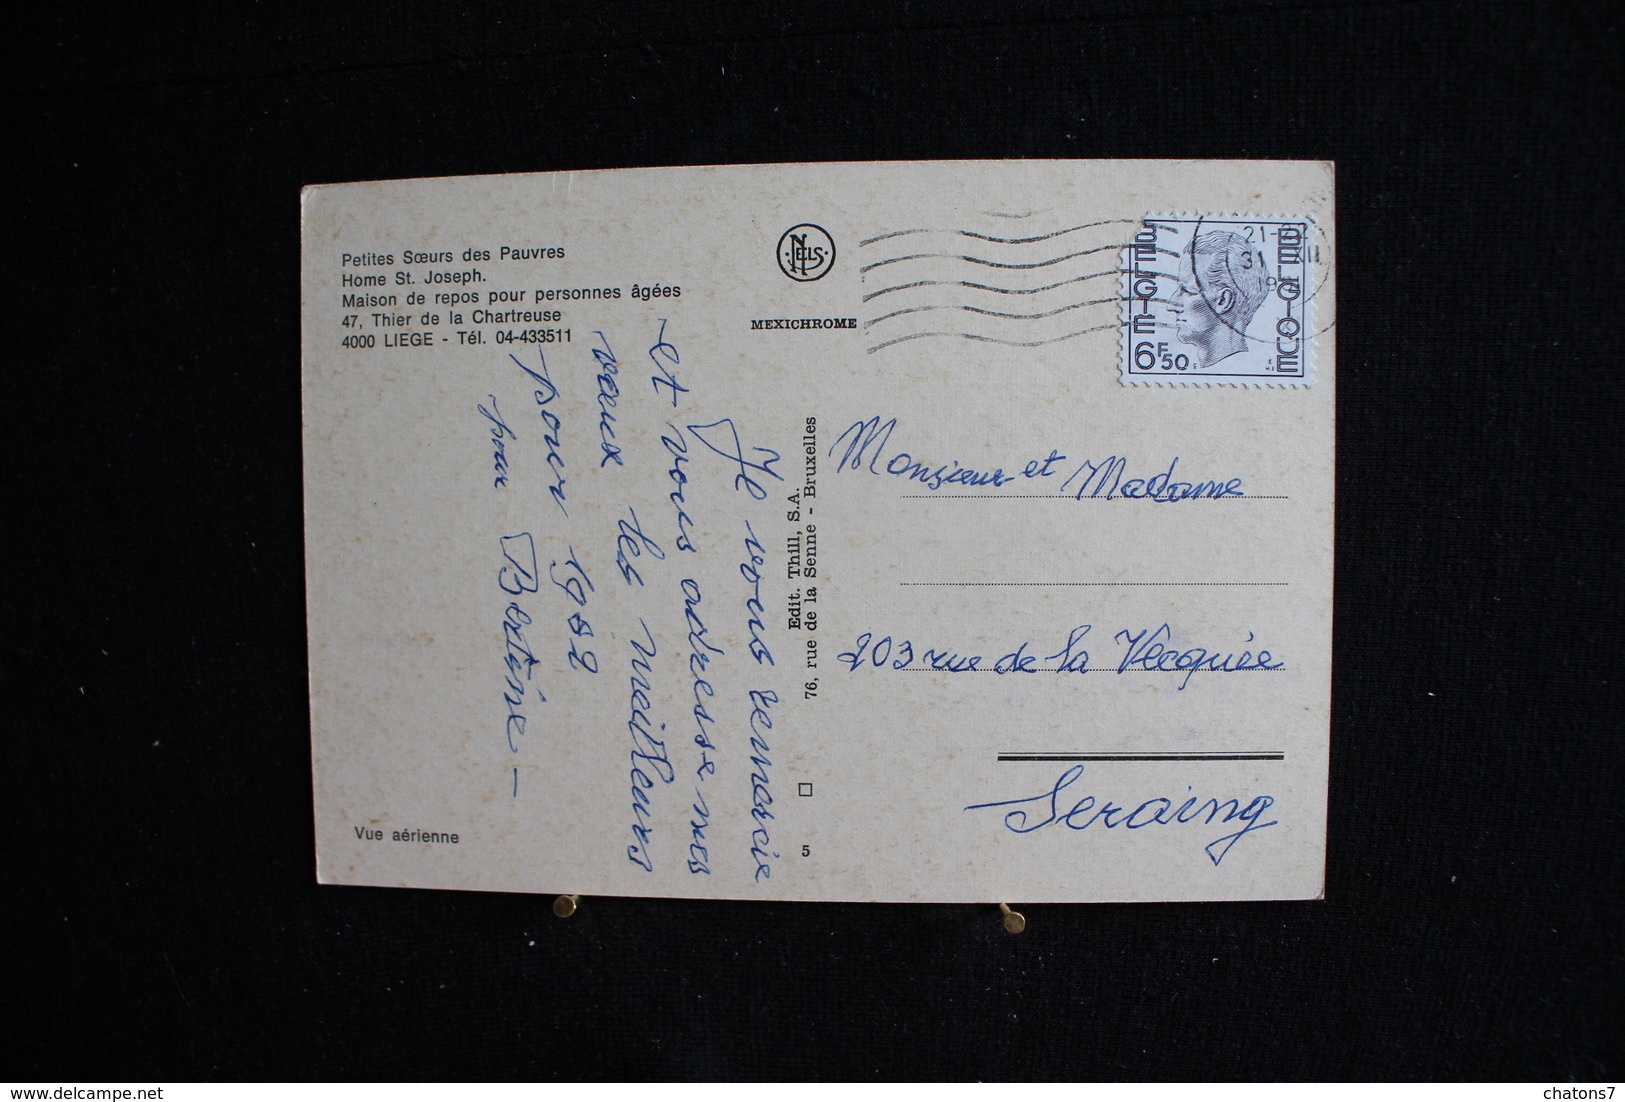 Petites Sœurs des Pauvres
Home St. Joseph.
Maison de repos pour personnes âgées
47, Thier de la Chartreuse
4000 LIEGE - Tél. 04-433511
Vue aérienne
NELS
MEXICHROME
Edit. Thill, S.A.
76, rue de la Senne - Bruxelles
5
Je vous remercie
et vous adresse mes
vœux les meilleurs
pour 1982
pour Bertine -
BELGIE
BELGIQUE
6F50
21-
31 XII
Monsieur et Madame
203 rue de la Vecquée
Seraing
delcampe.net
chatons7